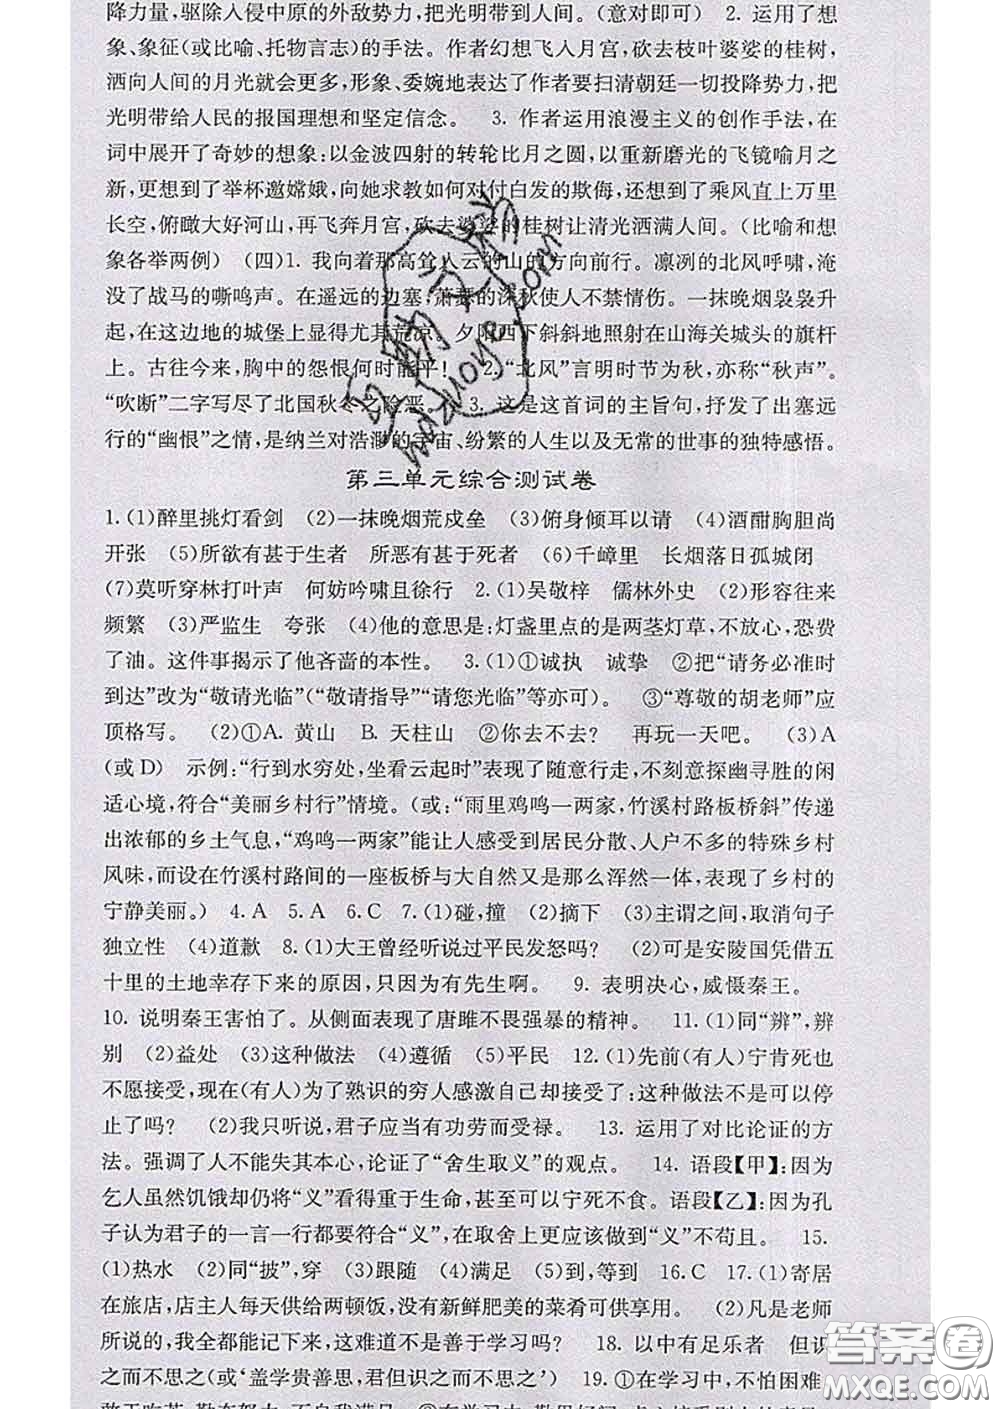 降力量,驱除入侵中原的外敌势力,把光明带到人间。(意对即可)　2. 运用了想
象、象征(或比喻、托物言志)的手法。作者幻想飞入月宫,砍去枝叶婆娑的桂树,
洒向人间的月光就会更多,形象、委婉地表达了作者要扫清朝廷一切投降势力,把
光明带给人民的报国理想和坚定信念。　3. 作者运用浪漫主义的创作手法,在
词中展开了奇妙的想象:以金波四射的转轮比月之圆,以重新磨光的飞镜喻月之
新,更想到了举杯邀嫦娥,向她求教如何对付白发的欺侮,还想到了乘风直上万里
长空,俯瞰大好河山,再飞奔月宫,砍去婆娑的桂树让清光洒满人间。(比喻和想
象各举两例)　(四)1. 我向着那高耸入云的山的方向前行。凛冽的北风呼啸,淹
没了战马的嘶鸣声。在遥远的边塞,萧瑟的深秋使人不禁情伤。一抹晚烟袅袅升
起,在这边地的城堡上显得尤其荒凉　夕阳西下斜斜地照射在山海关城头的旗杆
上。古往今来,胸中的怨恨何时能平!　2.“北风”言明时节为秋,亦称“秋声”。
“吹断”二字写尽了北国秋冬之险恶　3. 这是这首词的主旨句,抒发了出塞远
行的“幽恨”之情,是纳兰对浩渺的宇宙、纷繁的人生以及无常的世事的独特感悟。
第三单元综合测试卷
1.(1)醉里挑灯看剑　(2)一抹晚烟荒戍垒　(3)俯身倾耳以请　(4)酒酣胸胆尚
开张　(5)所欲有甚于生者　所恶有甚于死者　(6)千嶂里　长烟落日孤城闭
(7)莫听穿林打叶声　何妨吟啸且徐行　2.(1)吴敬梓　儒林外史　(2)形容往来
频繁　(3)严监生　夸张　(4)他的意思是:灯盏里点的是两茎灯草,不放心,恐费
了油。这件事揭示了他吝啬的本性。　3.(1)①诚执　诚挚　②把“请务必准时
到达”改为“敬请光临”(“敬请指导”“请您光临”等亦可)。　③“尊敬的胡老师”应
顶格写。　(2)①A. 黄山　B. 天柱山　②你去不去?　再玩一天吧。　(3)A
(或D)　示例:“行到水穷处,坐看云起时”表现了随意行走,不刻意探幽寻胜的闲
适心境,符合“美丽乡村行”情境。(或:“雨里鸡鸣一两家,竹溪村路板桥斜”传递
出浓郁的乡土气息,“鸡鸣一两家”能让人感受到居民分散、人户不多的特殊乡村
风味,而设在竹溪村路间的一座板桥与大自然又是那么浑然一体,表现了乡村的
宁静美丽。)　4.A　5.A　6.C　7.(1)碰,撞　(2)摘下　(3)主谓之间,取消句子
独立性　(4)道歉　8.(1)大王曾经听说过平民发怒吗?　(2)可是安陵国凭借五
十里的土地幸存下来的原因,只因为有先生啊。　9. 表明决心,威慑秦王。
10. 说明秦王害怕了。从侧面表现了唐雎不畏强暴的精神。　11.(1)同“辨”,辨
别　(2)益处　(3)这种做法　(4)遵循　(5)平民　12.(1)先前(有人)宁肯死也
不愿接受,现在(有人)为了熟识的穷人感激自己却接受了;这种做法不是可以停
止了吗?　(2)我只听说,君子应当有功劳而受禄。　13. 运用了对比论证的方
法。强调了人不能失其本心,论证了“舍生取义”的观点。　14. 语段【甲】:因为
乞人虽然饥饿却仍将“义”看得重于生命,甚至可以宁死不食。语段【乙】:因为孔
子认为君子的一言一行都要符合“义”,在取舍上更应该做到“义”不苟且。　15.
(1)热水　(2)同“披”,穿　(3)跟随　(4)满足　(5)到,等到　16.C　17.(1)寄居
在旅店,店主人每天供给两顿饭,没有新鲜肥美的菜肴可供享用。　(2)凡是老师
所说的,我全都能记下来,这难道不是善于学习吗?　18. 以中有足乐者　但识
之而不思之(或‘盖学贵善思,君但识之而不思之’)　19.①在学习中,不怕困难,
答案圈
MXQE.COM